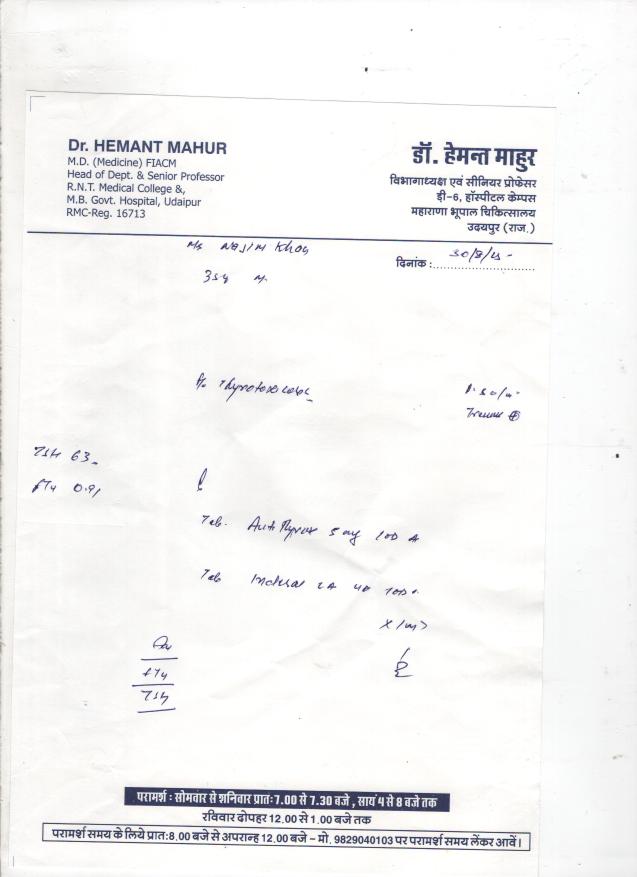 Dr. HEMANT MAHUR
M.D. (Medicine) FIACM
Head of Dept. & Senior Professor
R.N.T. Medical College &,
M.B. Govt. Hospital, Udaipur
RMC-Reg. 16713
डॉ. हेमन्त माहुर
विभागाध्यक्ष एवं सीनियर प्रोफेसर
डी-6, हॉस्पीटल केम्पस
महाराणा भूपाल चिकित्सालय
उदयपुर (राज.)
दिनांक :
Khan
Thyrotoxicosis
TSH 63
fT4 0.91
Tab. Antithyrox 5 mg 1OD
Tab Inderal LA 40 1OD
fT4
TSH
परामर्श : सोमवार से शनिवार प्रातः 7.00 से 7.30 बजे , सायं 4 से 8 बजे तक
रविवार ढोपहर 12.00 से 1.00 बजे तक
परामर्श समय के लिये प्रातः 8.00 बजे से अपरान्ह 12.00 बजे – मो. 9829040103 पर परामर्श समय लेंकर आवें।